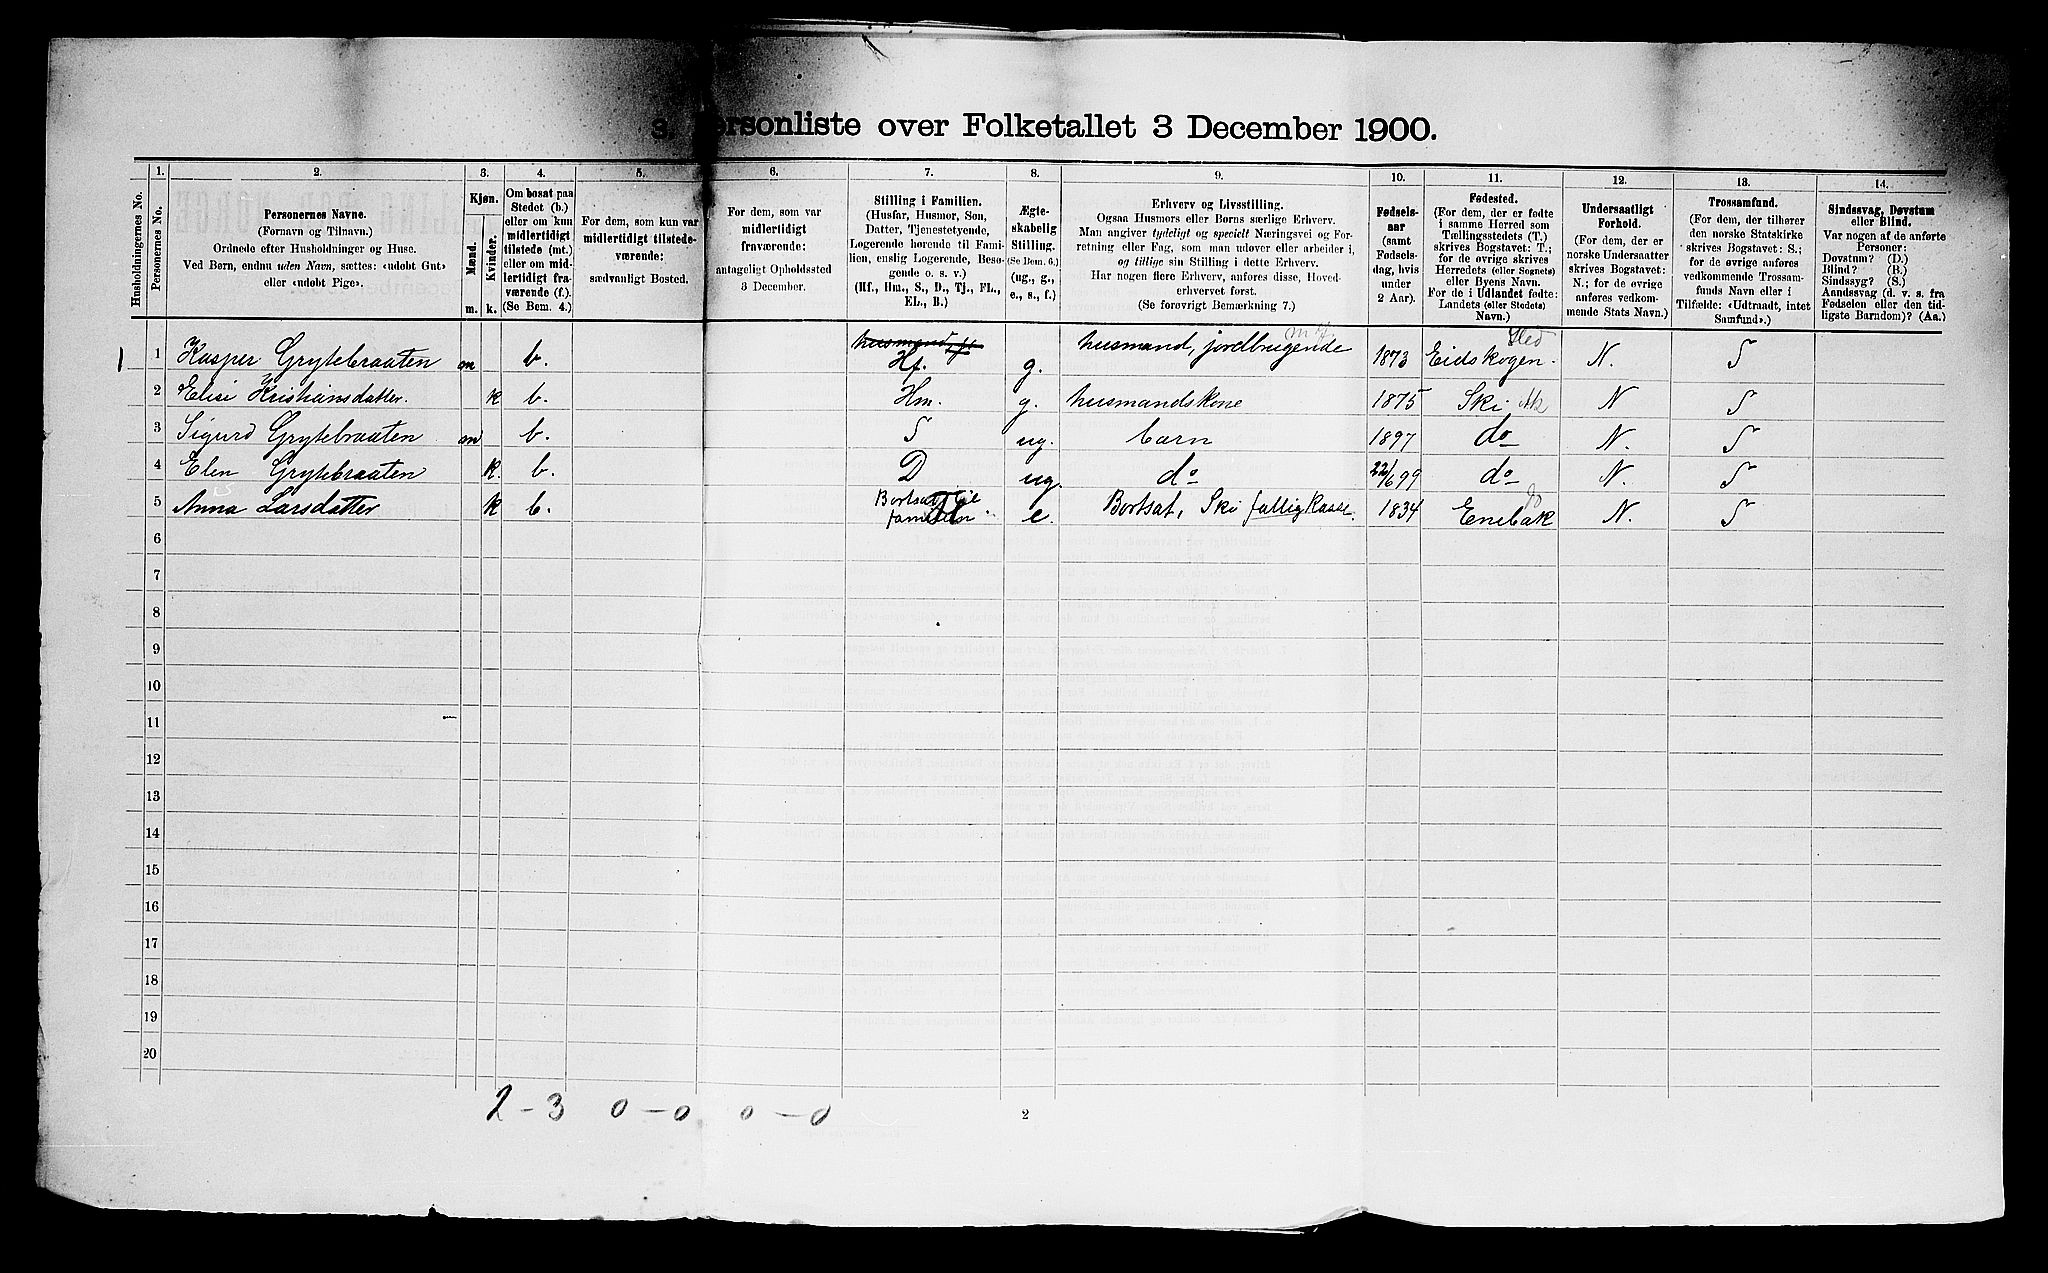 3. Personliste over Folketallet 3 December 1900.
1. 2. 3. 4. 5. 6. 7. 8. 9. 10. 11. 12. 13. 14.
Husholdningernes No.
Personernes No.
Personernes Navne.
(Fornavn og Tilnavn.)
Ordnede efter Husholdninger og Huse.
Ved Børn, endnu uden Navn, sættes: «udøbt Gut»
eller «udøbt Pige».
Kjøn.
Mænd.
Kvinder.
m. k.
Om bosat paa
Stedet (b.)
eller om kun
midlertidigt
tilstede (mt.)
eller om mid-
lertidigt fra-
værende (f.).
(Se Bem. 4.)
For dem, som kun var
midlertidigt tilstede-
værende:
sædvanligt Bosted.
For dem, som var
midlertidigt
fraværende:
antageligt Opholdssted
3 December.
Stilling i Familien.
(Husfar, Husmor, Søn,
Datter, Tjenestetyende,
Logerende hørende til Fami-
lien, enslig Logerende, Besø-
gende o. s. v.)
(Hf., Hm., S., D., Tj., FL.,
EL., B.)
Ægte-
skabelig
Stilling.
(Se Bem. 6.)
(ug., g.,
e., s., f.)
Erhverv og Livsstilling.
Ogsaa Husmors eller Børns særlige Erhverv.
Man angiver tydeligt og specielt Næringsvei og For-
retning eller Fag, som man udøver eller arbeider i,
og tillige sin Stilling i dette Erhverv.
Har nogen flere Erhverv, anføres disse, Hoved-
erhvervet først.
(Se forøvrigt Bemærkning 7.)
Fødsels-
aar
(samt
Fødsels-
dag, hvis
under
2 Aar).
Fødested.
(For dem, der er fødte
i samme Herred som
Tællingsstedets (T.)
skrives Bogstavet: T.;
for de øvrige skrives
Herredets (eller Sognets)
eller Byens Navn.
For de i Udlandet fødte:
Landets (eller Stedets)
Navn.)
Undersaatligt
Forhold.
(For dem, der er
norske Undersaatter
skrives Bogstavet:
N.; for de øvrige
anføres vedkom-
mende Stats Navn.)
Trossamfund.
(For dem, der tilhører
den norske Statskirke
skrives Bogstavet: S.;
for de øvrige anføres
vedkommende Trossam-
funds Navn eller i
Tilfælde: «Udtraadt, intet
Samfund».)
Sindssvag, Døvstum
eller Blind.
Var nogen af de anførte
Personer:
Døvstum? (D.)
Blind? (B.)
Sindssyg? (S.)
Aandssvag (d. v. s. fra
Fødselen eller den tid-
ligste Barndom)? (Aa.)
1 1 Kasper Grytebraaten m b. husmand Hf. g. husmand, jordbrugende 1873 Eidskogen. Hed N. S
2 Elise Kristiansdatter. k b. Hm. g. husmandskone 1875 Ski Ak N S
3 Sigurd Grytebraaten m b. S ug. barn 1897 do N. S
4 Elen Grytebraaten k. b. D ug. do 22/6 99 do N. S
5 Anna Larsdatter k b. Bortsat til familien e. Bortsat, Ski fattigkasse. 1834 Enebak N. S
6
7
8
9
10
11
12
13
14
15
16
17
18
19
20
2 - 3 0 - 0 0 - 0
2